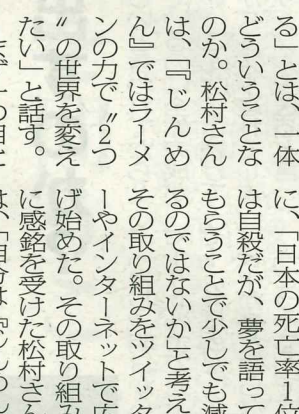 る」とは、一体
どういうことな
のか。松村さん
は、「『じんめ
ん』ではラーメ
ンの力で〝2つ
〟の世界を変え
たい」と話す。
に、「日本の死亡率1位
は自殺だが、夢を語って
もらうことで少しでも減
るのではないか」と考え
その取り組みをツイッタ
ーやインターネットで広
げ始めた。その取り組み
に感銘を受けた松村さん